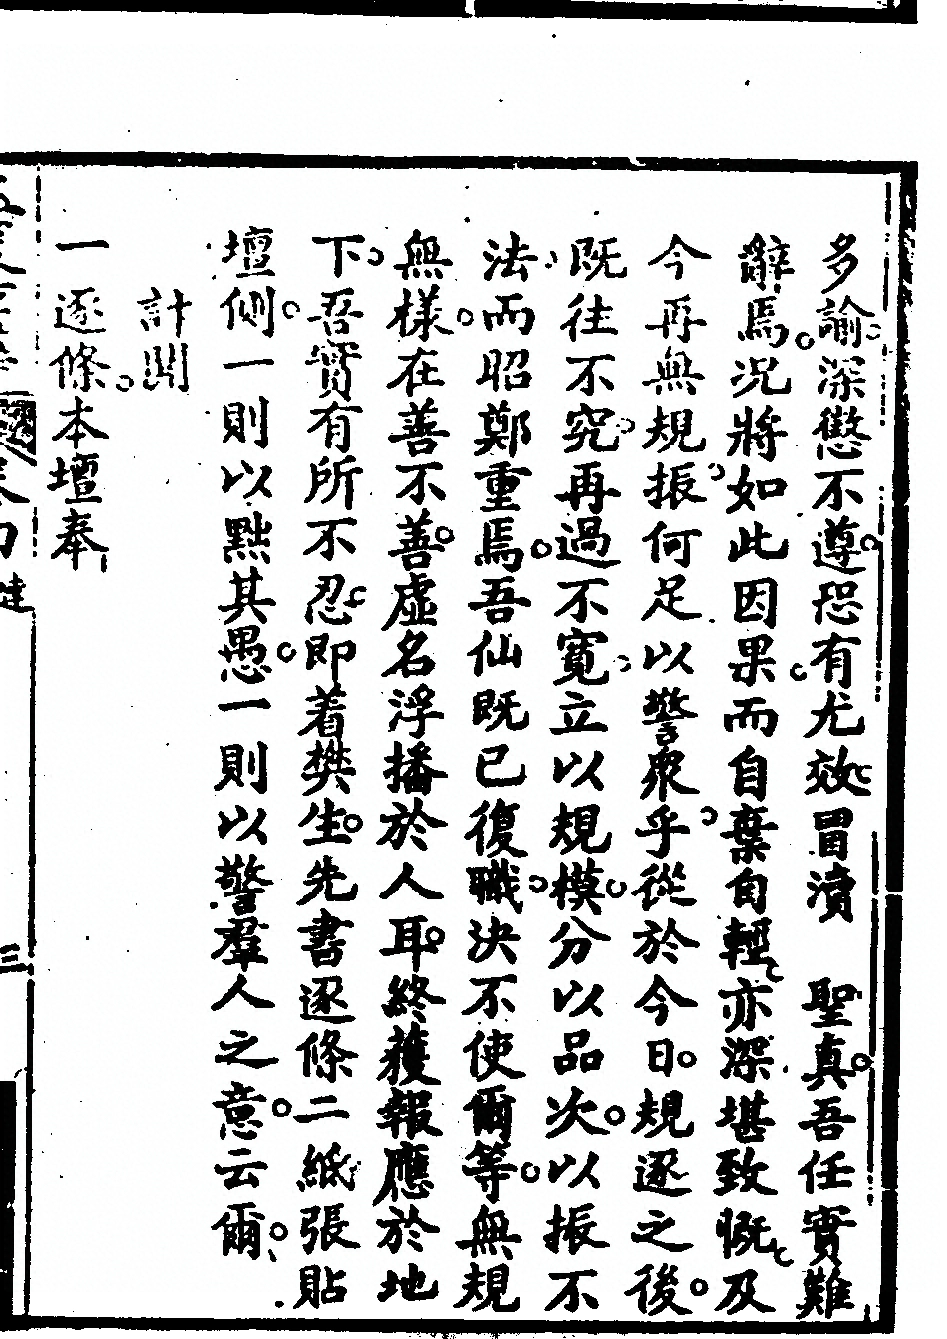 多諭深懲不遵恐有尤效冒瀆　聖真吾任實難
辭焉况將如此因果而自棄自輕亦深堪致慨及
今再無規振何足以警衆乎從於今日規逐之後
既往不究再過不寬立以規模分以品次以振不
法而昭鄭重焉吾仙既已復職決不使爾等無規
無樣在善不善虛名浮播於人耳終獲報應於地
下吾實有所不忍即着樊生先書逐條二紙張貼
壇側一則以點其愚一則以警羣人之意云爾
計開
一逐條本壇奉